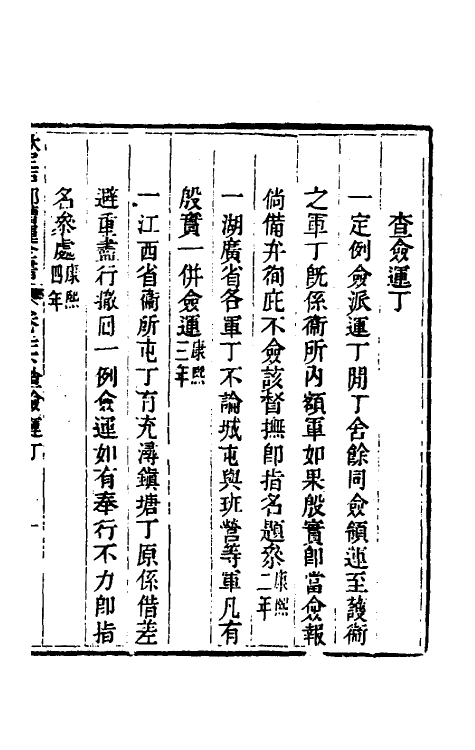 查僉運丁
一定例僉派運丁閒丁舍餘同僉領運至護衛
之軍丁旣係衛所內額軍如果殷實卽當僉報
倘備弁徇庇不僉該督撫卽指名題叅康熙二年
一湖廣省各軍丁不論城屯與班營等軍凡有
殷實一併僉運康熙三年
一江西省衛所屯丁有充潯鎮塘丁原係借差
避重盡行撤回一例僉運如有奉行不力卽指
名叅處康熙四年
查僉運丁
一